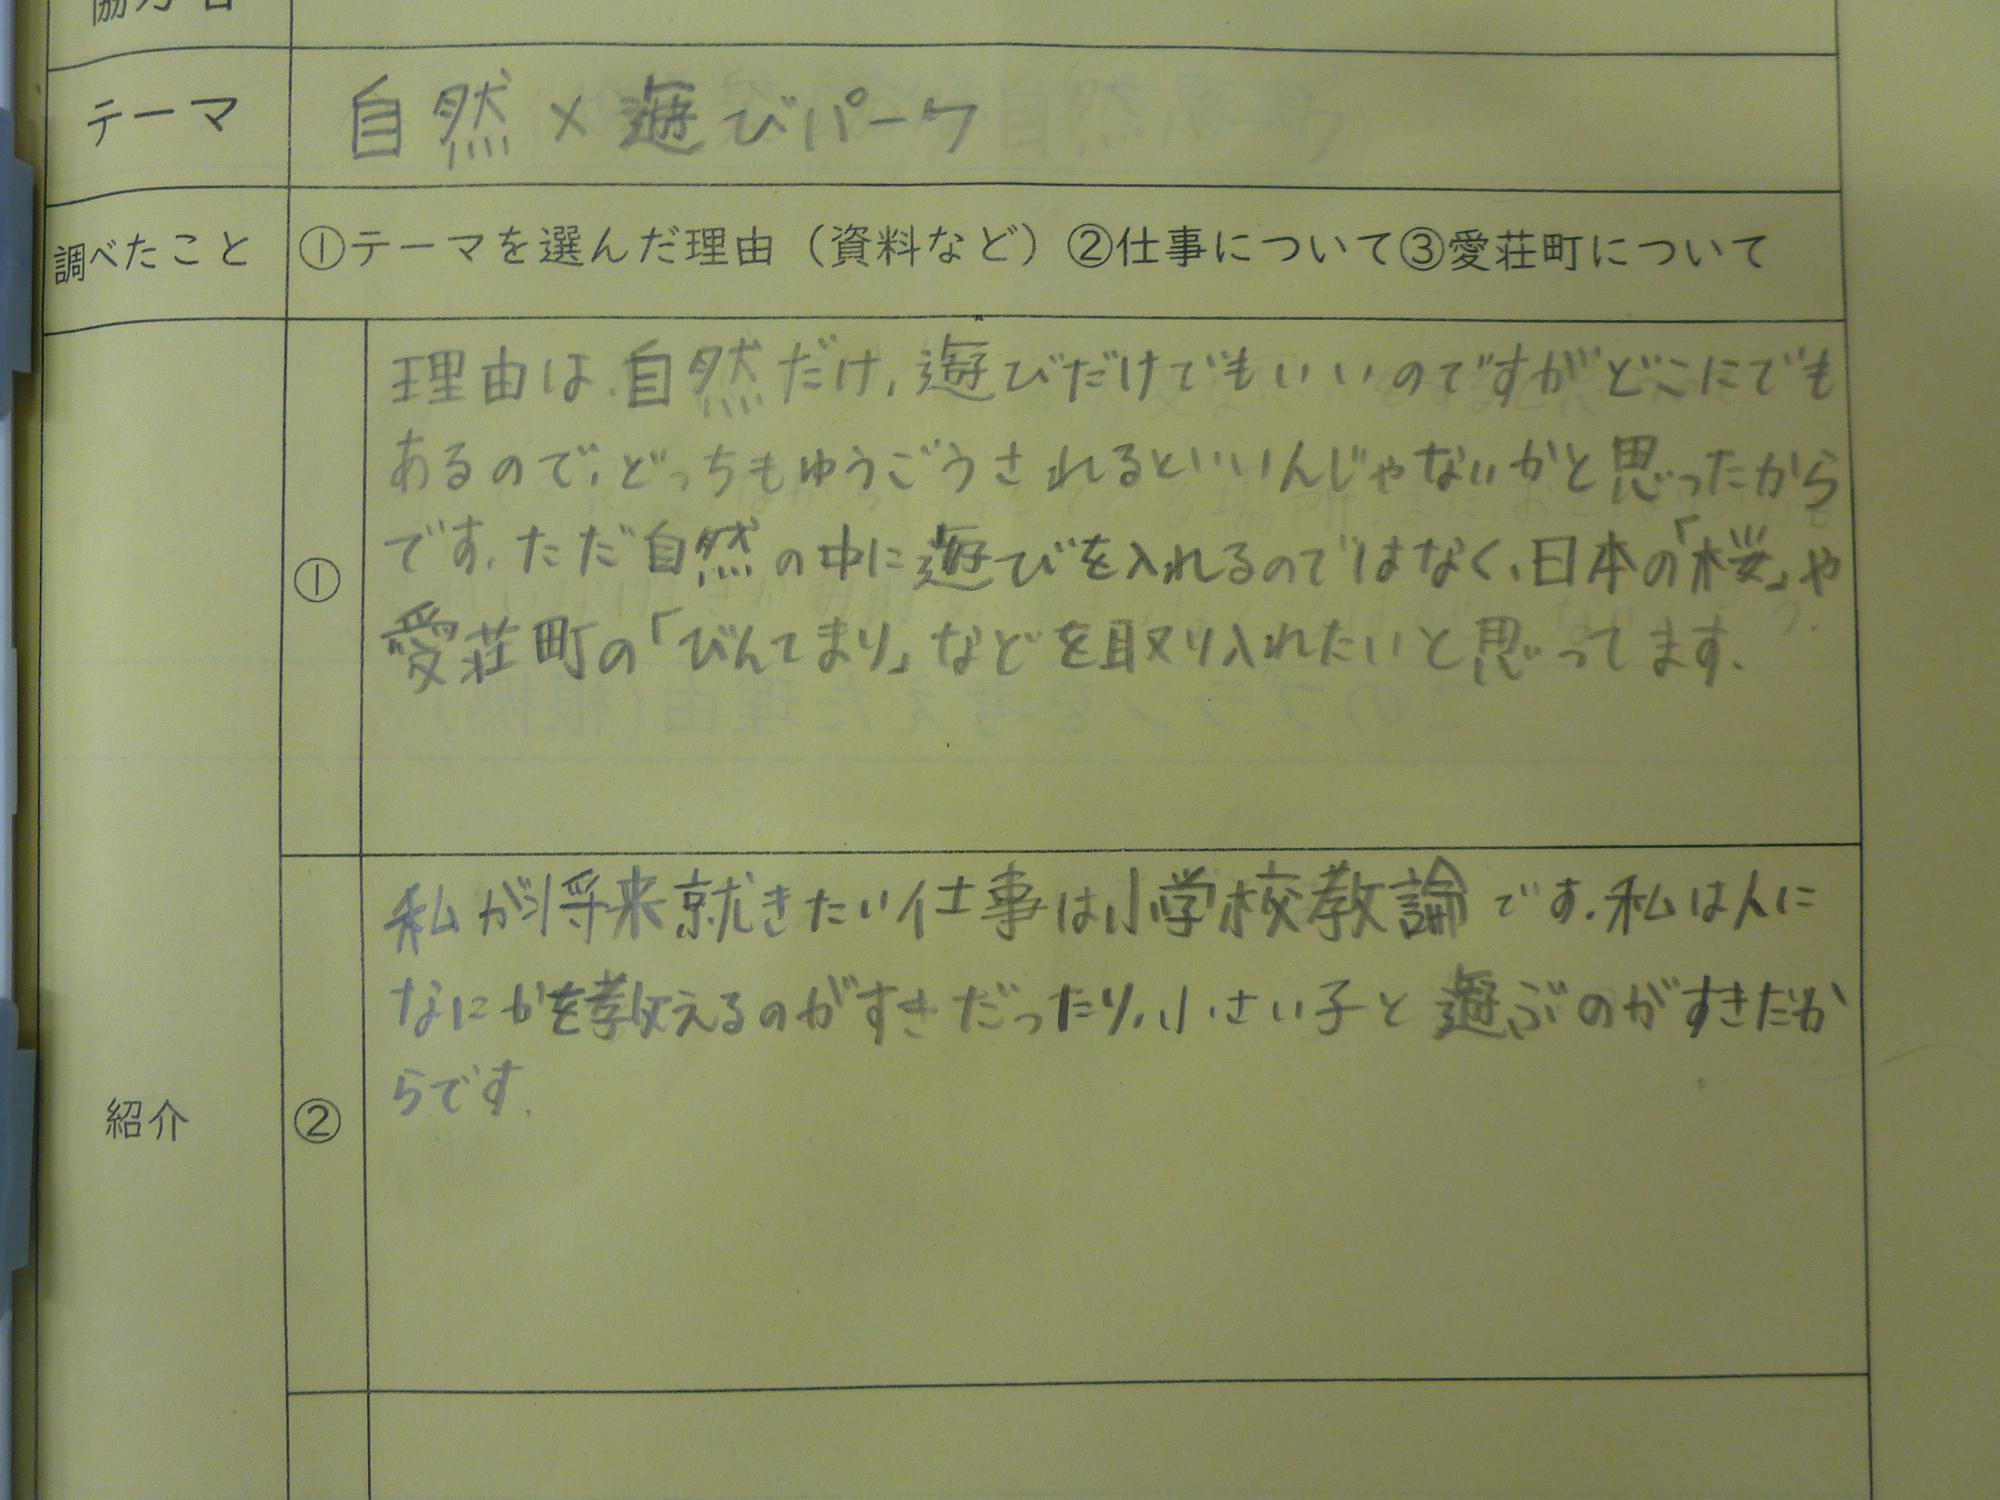 テーマ
自然×遊びパーク
調べたこと
①テーマを選んだ理由（資料など）②仕事について③愛荘町について
紹介
①
理由は、自然だけ、遊びだけでもいいのですがどこにでも
あるので、どっちもゆうごうされるといいんじゃないかと思ったから
です。ただ自然の中に遊びを入れるのではなく、日本の「桜」や
愛荘町の「びんてまり」などを取り入れたいと思ってます。
②
私が将来就きたい仕事は小学校教論です。私は人に
なにかを教えるのがすきだったり、小さい子と遊ぶのがすきだか
らです。